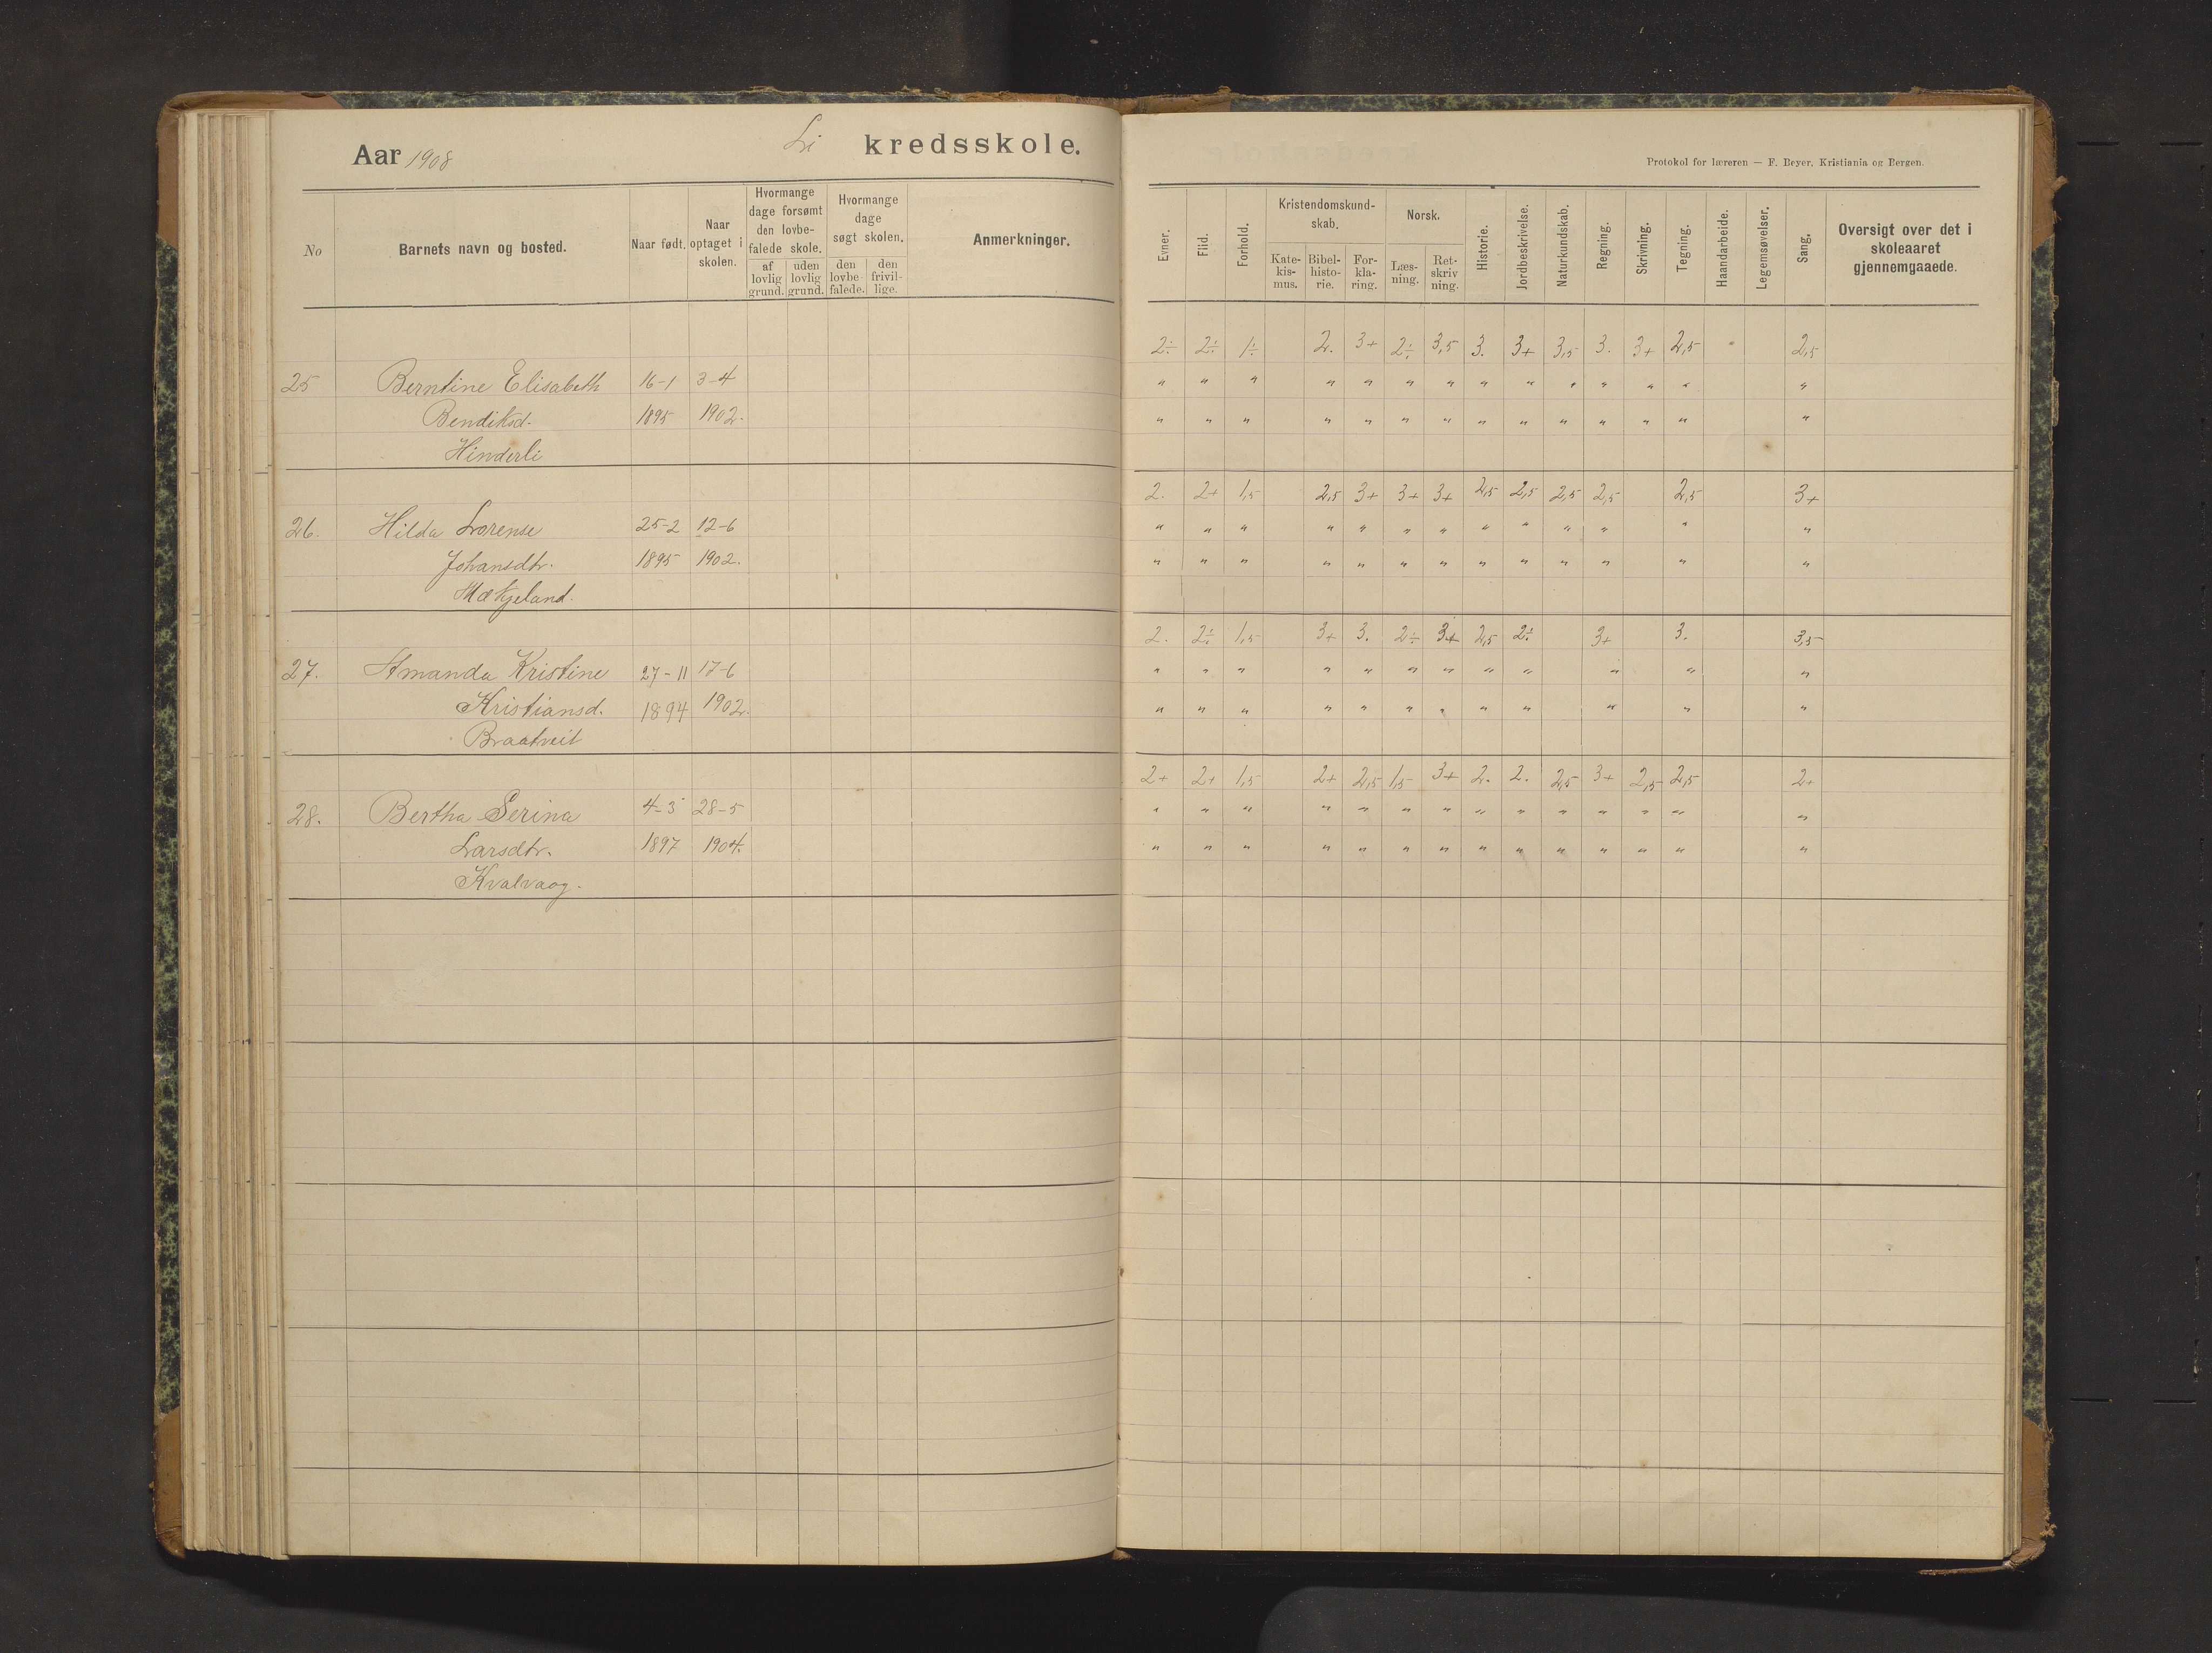 Aar 1908 Li kredsskole.
Protokol for læreren — F. Beyer, Kristiania og Bergen.
No
Barnets navn og bosted.
Naar født.
Naar optaget i skolen.
Hvormange dage forsømt den lovbefalede skole.
af lovlig grund.
uden lovlig grund.
Hvormange dage søgt skolen.
den lovbefalede.
den frivillige.
Anmerkninger.
Evner.
Flid.
Forhold.
Kristendomskundskab.
Katekismus.
Bibelhistorie.
Forklaring.
Norsk.
Læsning.
Retskrivning.
Historie.
Jordbeskrivelse.
Naturkundskab.
Regning.
Skrivning.
Tegning.
Haandarbeide.
Legemsøvelser.
Sang.
Oversigt over det i skoleaaret gjennemgaaede.
2÷ 2÷ 1÷ 2. 3+ 2÷ 3,5 3. 3+ 3,5 3. 3+ 2,5 2,5
25 Berntine Elisabeth 16-1 3-4 " " " " " " " " " " " " " "
Bendiksd. 1895 1902. " " " " " " " " " " " " " "
Hinderli
2. 2+ 1,5 2,5 3+ 3+ 3+ 2,5 2,5 2,5 2,5 2,5 3+
26. Hilda Lorense 25-2 12-6 " " " " " " " " " " " " "
Johansdtr. 1895 1902. " " " " " " " " " " " " "
Mækjeland.
2. 2÷ 1,5 3+ 3. 2÷ 3+ 2,5 2÷ 3+ 3. 3,5
27. Amanda Kristine 27-11 17-6 " " " " " " " " " " " "
Kristiansd. 1894 1902. " " " " " " " " " " " "
Braatveit
2+ 2+ 1,5 2+ 2,5 1,5 3+ 2. 2. 2,5 3+ 2,5 2,5 2+
28. Bertha Serina 4-3 28-5 " " " " " " " " " " " " " "
Larsdtr. 1897 1904. " " " " " " " " " " " " " "
Kvalvaag.